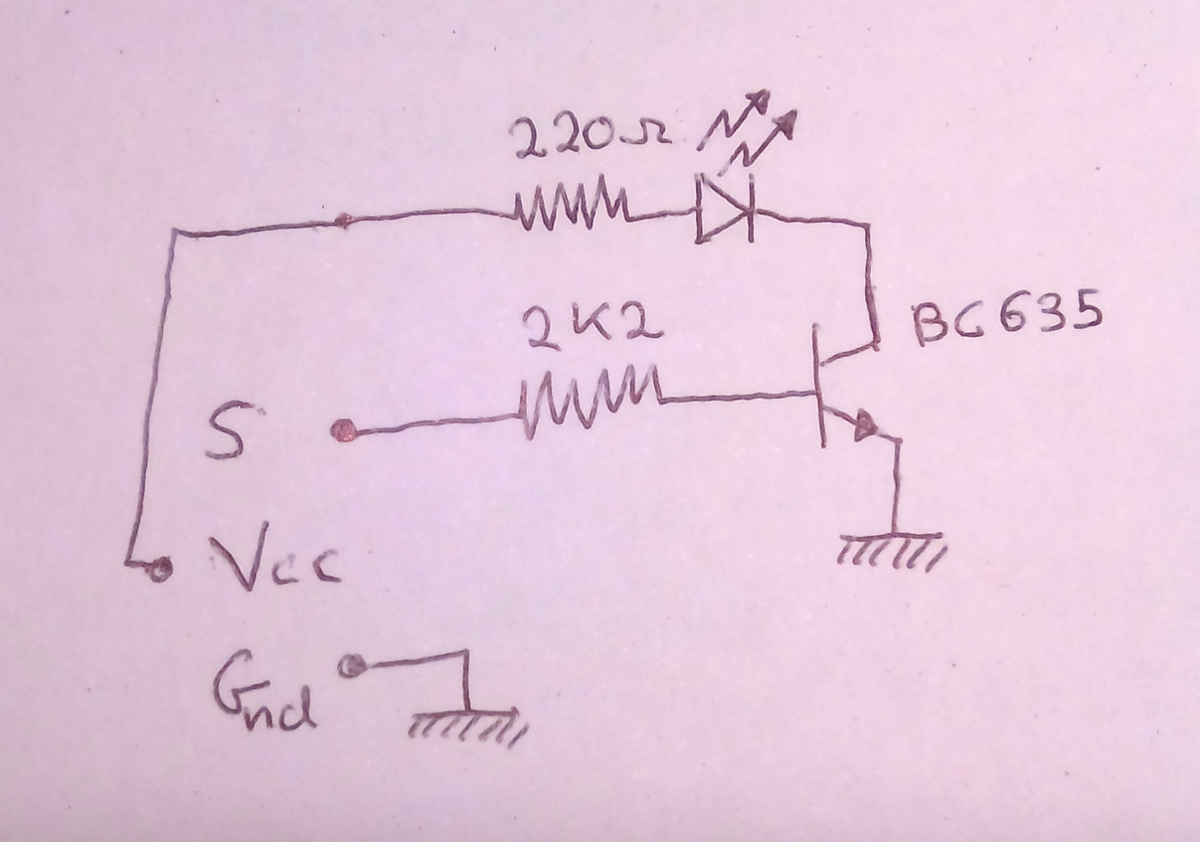 220Ω
2K2
BC635
S
Vcc
Gnd